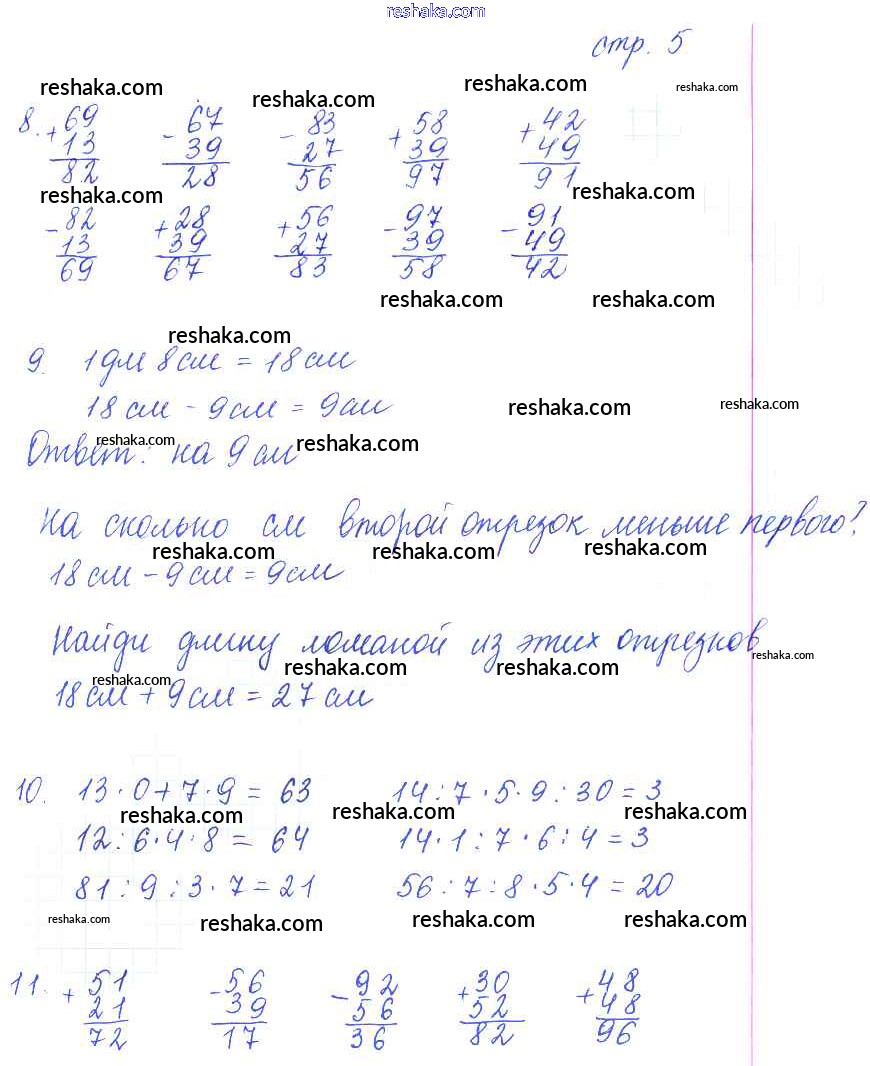 reshaka.com
стр. 5
reshaka.com reshaka.com reshaka.com reshaka.com
8. + 69 - 67 - 83 + 58 + 42
13 39 27 39 49
82 28 56 97 91
reshaka.com reshaka.com
- 82 + 28 + 56 - 97 - 91
13 39 27 39 49
69 67 83 58 42
reshaka.com reshaka.com
reshaka.com
9. 1 дм 8 см = 18 см
18 см - 9 см = 9 см
reshaka.com reshaka.com
Ответ: на 9 см
reshaka.com reshaka.com
На сколько см второй отрезок меньше первого?
reshaka.com reshaka.com reshaka.com
18 см - 9 см = 9 см
Найди длину ломаной из этих отрезков
reshaka.com reshaka.com reshaka.com reshaka.com
18 см + 9 см = 27 см
10. 13 · 0 + 7 · 9 = 63 14 : 7 · 5 · 9 : 30 = 3
reshaka.com reshaka.com reshaka.com
12 : 6 · 4 · 8 = 64 14 · 1 : 7 · 6 : 4 = 3
81 : 9 : 3 · 7 = 21 56 : 7 : 8 · 5 · 4 = 20
reshaka.com reshaka.com reshaka.com reshaka.com
11. + 51 - 56 - 92 + 30 + 48
21 39 56 52 48
72 17 36 82 96